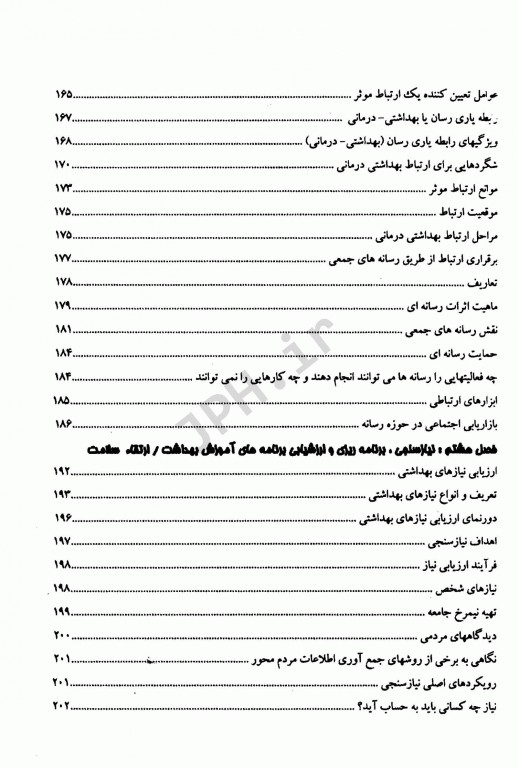 عوامل تعیین کننده یک ارتباط موثر ........ ۱۶۵
رابطه یاری رسان یا بهداشتی- درمانی ........ ۱۶۷
ویژگیهای رابطه یاری رسان (بهداشتی- درمانی) ........ ۱۶۸
شگردهایی برای ارتباط بهداشتی درمانی ........ ۱۷۰
موانع ارتباط موثر ........ ۱۷۳
موقعیت ارتباط ........ ۱۷۵
مراحل ارتباط بهداشتی درمانی ........ ۱۷۵
برقراری ارتباط از طریق رسانه های جمعی ........ ۱۷۷
تعاریف ........ ۱۷۸
ماهیت اثرات رسانه ای ........ ۱۷۹
نقش رسانه های جمعی ........ ۱۸۱
حمایت رسانه ای ........ ۱۸۴
چه فعالیتهایی را رسانه ها می توانند انجام دهند و چه کارهایی را نمی توانند ........ ۱۸۴
ابزارهای ارتباطی ........ ۱۸۵
بازاریابی اجتماعی در حوزه رسانه ........ ۱۸۶
فصل هشتم : نیازسنجی ، برنامه ریزی و ارزشیابی برنامه های آموزش بهداشت / ارتقاء سلامت
ارزیابی نیازهای بهداشتی ........ ۱۹۲
تعریف و انواع نیازهای بهداشتی ........ ۱۹۳
دورنمای ارزیابی نیازهای بهداشتی ........ ۱۹۶
اهداف نیازسنجی ........ ۱۹۷
فرآیند ارزیابی نیاز ........ ۱۹۸
نیازهای شخص ........ ۱۹۸
تهیه نیمرخ جامعه ........ ۱۹۹
دیدگاههای مردمی ........ ۲۰۰
نگاهی به برخی از روشهای جمع آوری اطلاعات مردم محور ........ ۲۰۱
رویکردهای اصلی نیازسنجی ........ ۲۰۱
نیاز چه کسانی باید به حساب آید؟ ........ ۲۰۲
JPH.ir